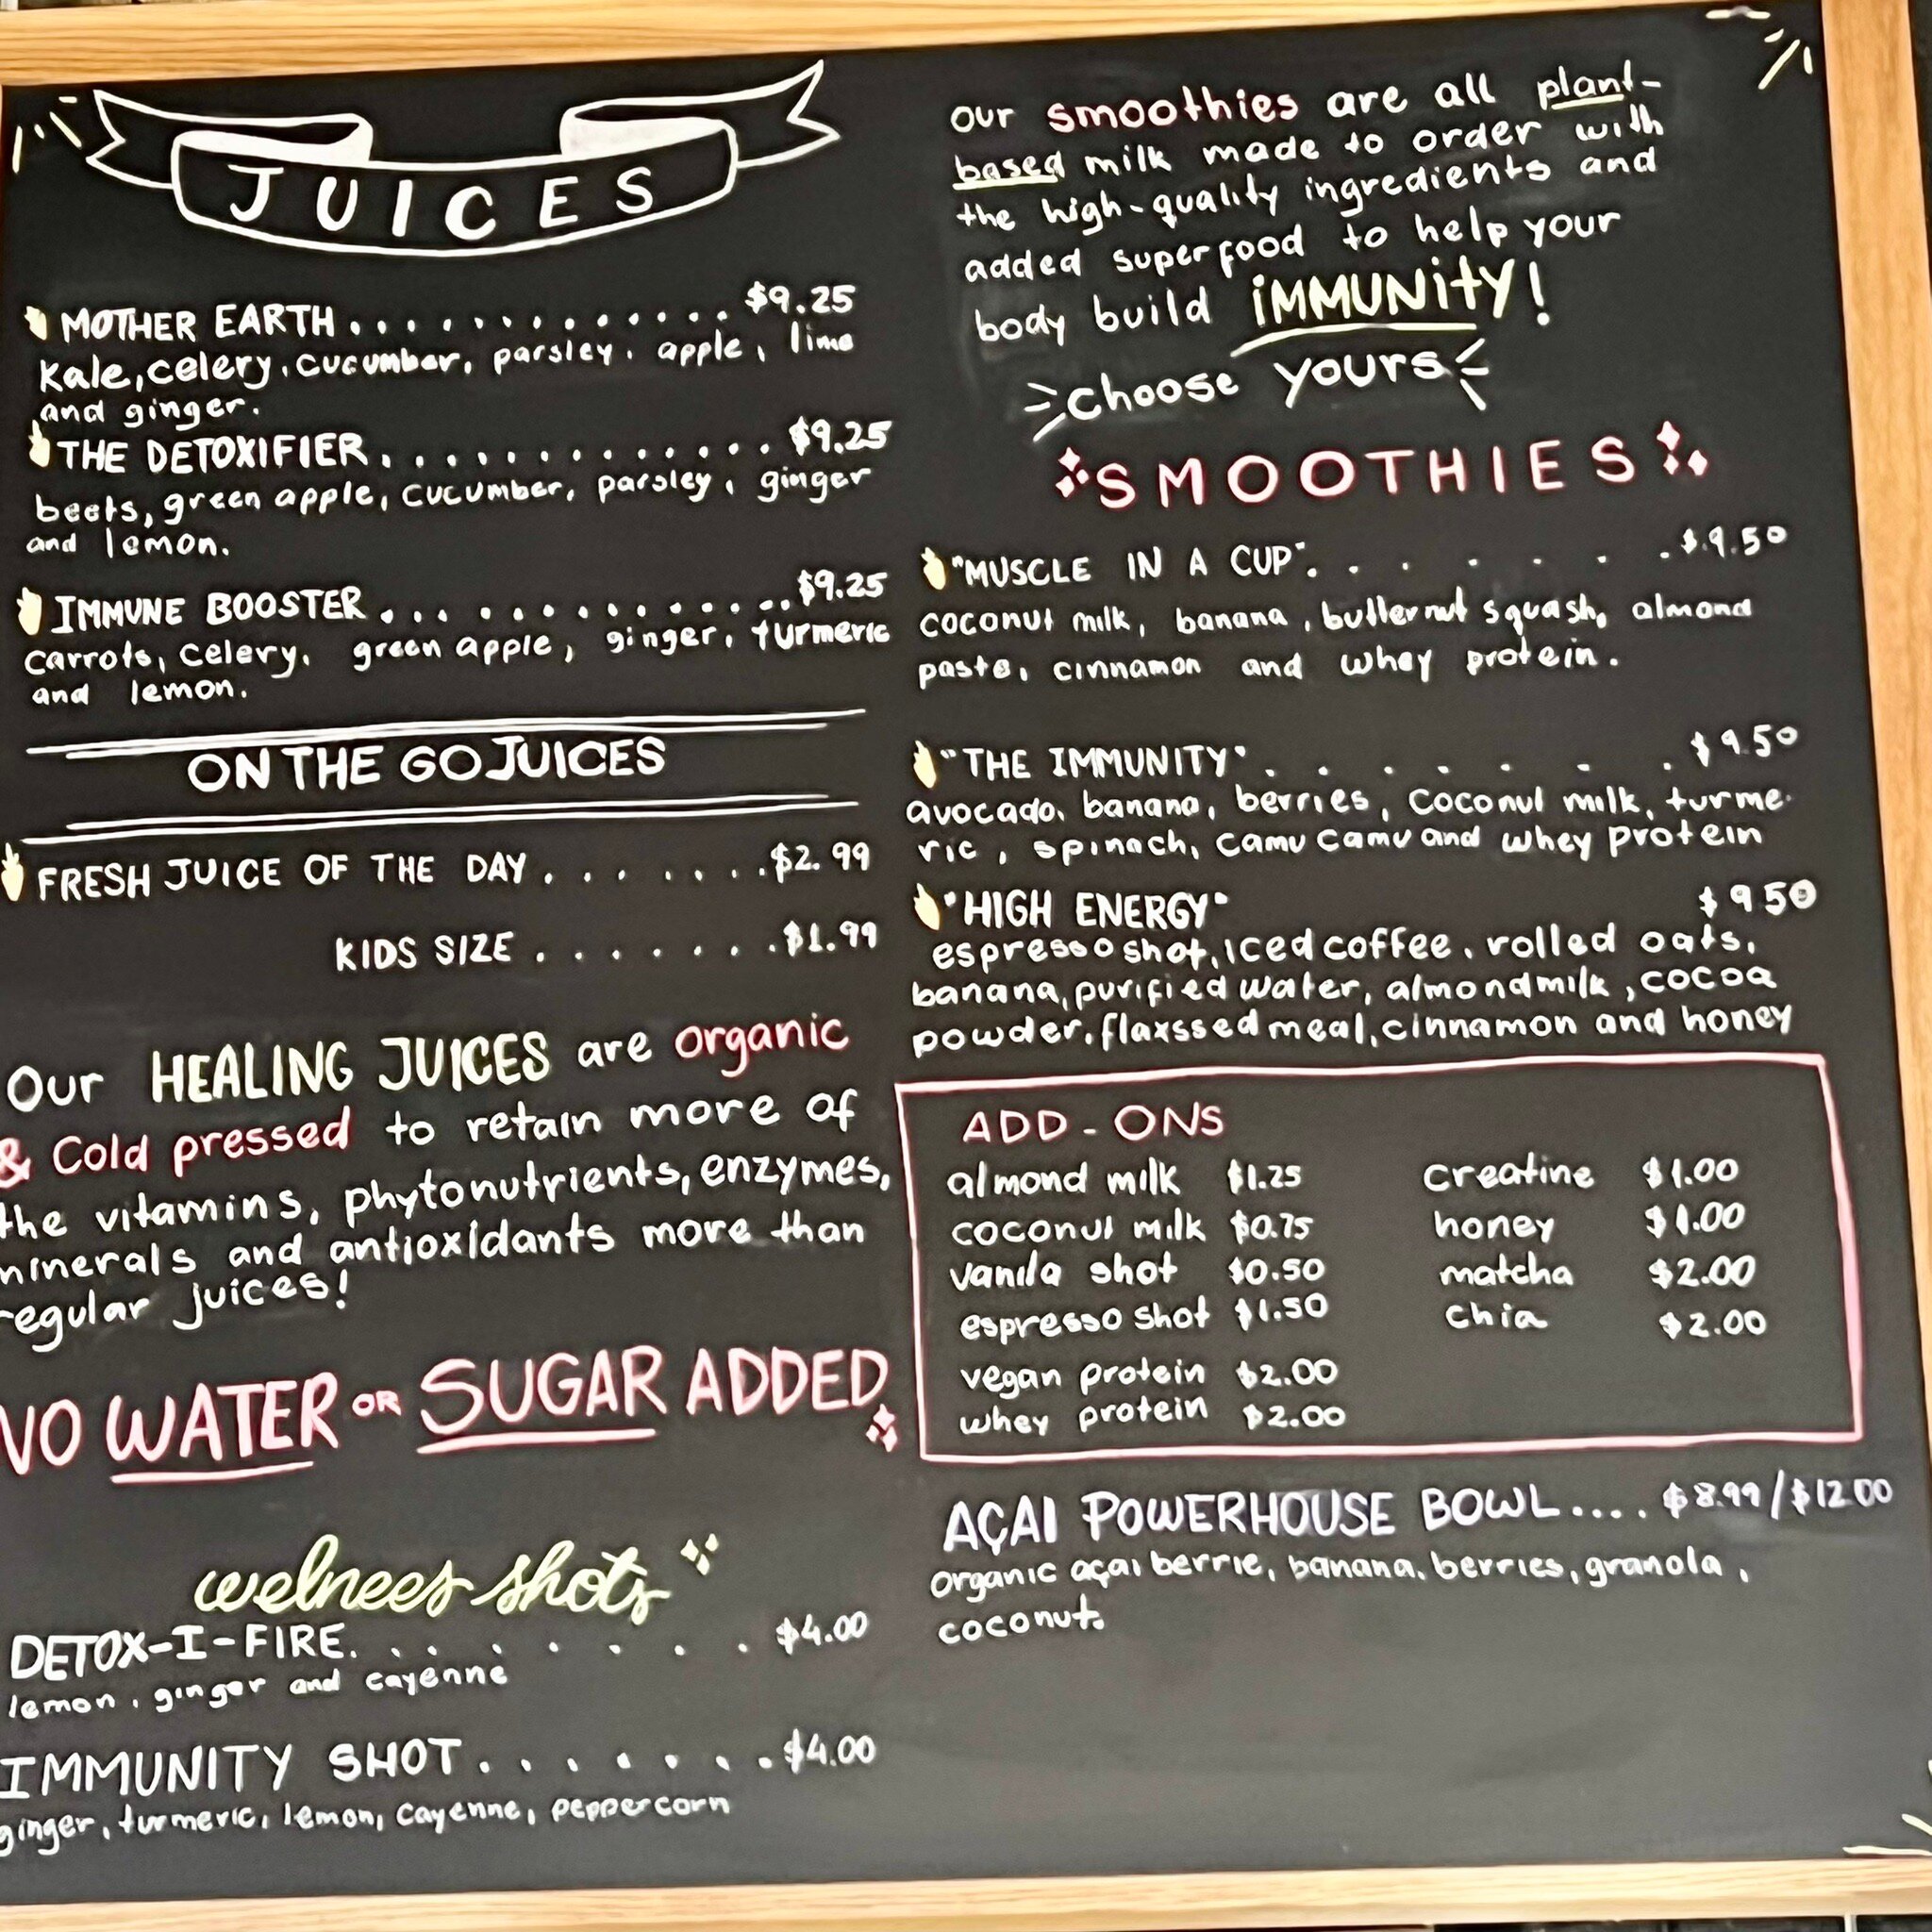 JUICES
MOTHER EARTH.............. $9.25
Kale, celery, cucumber, parsley, apple, lime
and ginger.
THE DETOXIFIER............. $9.25
beets, green apple, cucumber, parsley, ginger
and lemon.
IMMUNE BOOSTER.............. $9.25
carrots, celery, green apple, ginger, turmeric
and lemon.
ON THE GO JUICES
FRESH JUICE OF THE DAY....... $2.99
KIDS SIZE ....... $1.99
Our HEALING JUICES are organic
& Cold pressed to retain more of
the vitamins, phytonutrients, enzymes,
minerals and antioxidants more than
regular juices!
NO WATER OR SUGAR ADDED
welnees shots
DETOX-I-FIRE........ $4.00
lemon, ginger and cayenne
IMMUNITY SHOT....... $4.00
ginger, turmeric, lemon, cayenne, peppercorn
our smoothies are all plant-
based milk made to order with
the high-quality ingredients and
added superfood to help your
body build iMMUNity!
choose yours
SMOOTHIES
"MUSCLE IN A CUP"....... $9.50
coconut milk, banana, butternut squash, almond
paste, cinnamon and whey protein.
"THE IMMUNITY"....... $9.50
avocado, banana, berries, coconut milk, turme-
ric, spinach, camu camu and whey protein
"HIGH ENERGY" $9.50
espresso shot, iced coffee, rolled oats,
banana, purified water, almond milk, cocoa
powder, flaxssed meal, cinnamon and honey
ADD-ONS
almond milk $1.25 creatine $1.00
coconut milk $0.75 honey $1.00
vanila shot $0.50 matcha $2.00
espresso shot $1.50 chia $2.00
vegan protein $2.00
whey protein $2.00
AÇAI POWERHOUSE BOWL.... $8.99/$12.00
organic açai berrie, banana, berries, granola,
coconut.